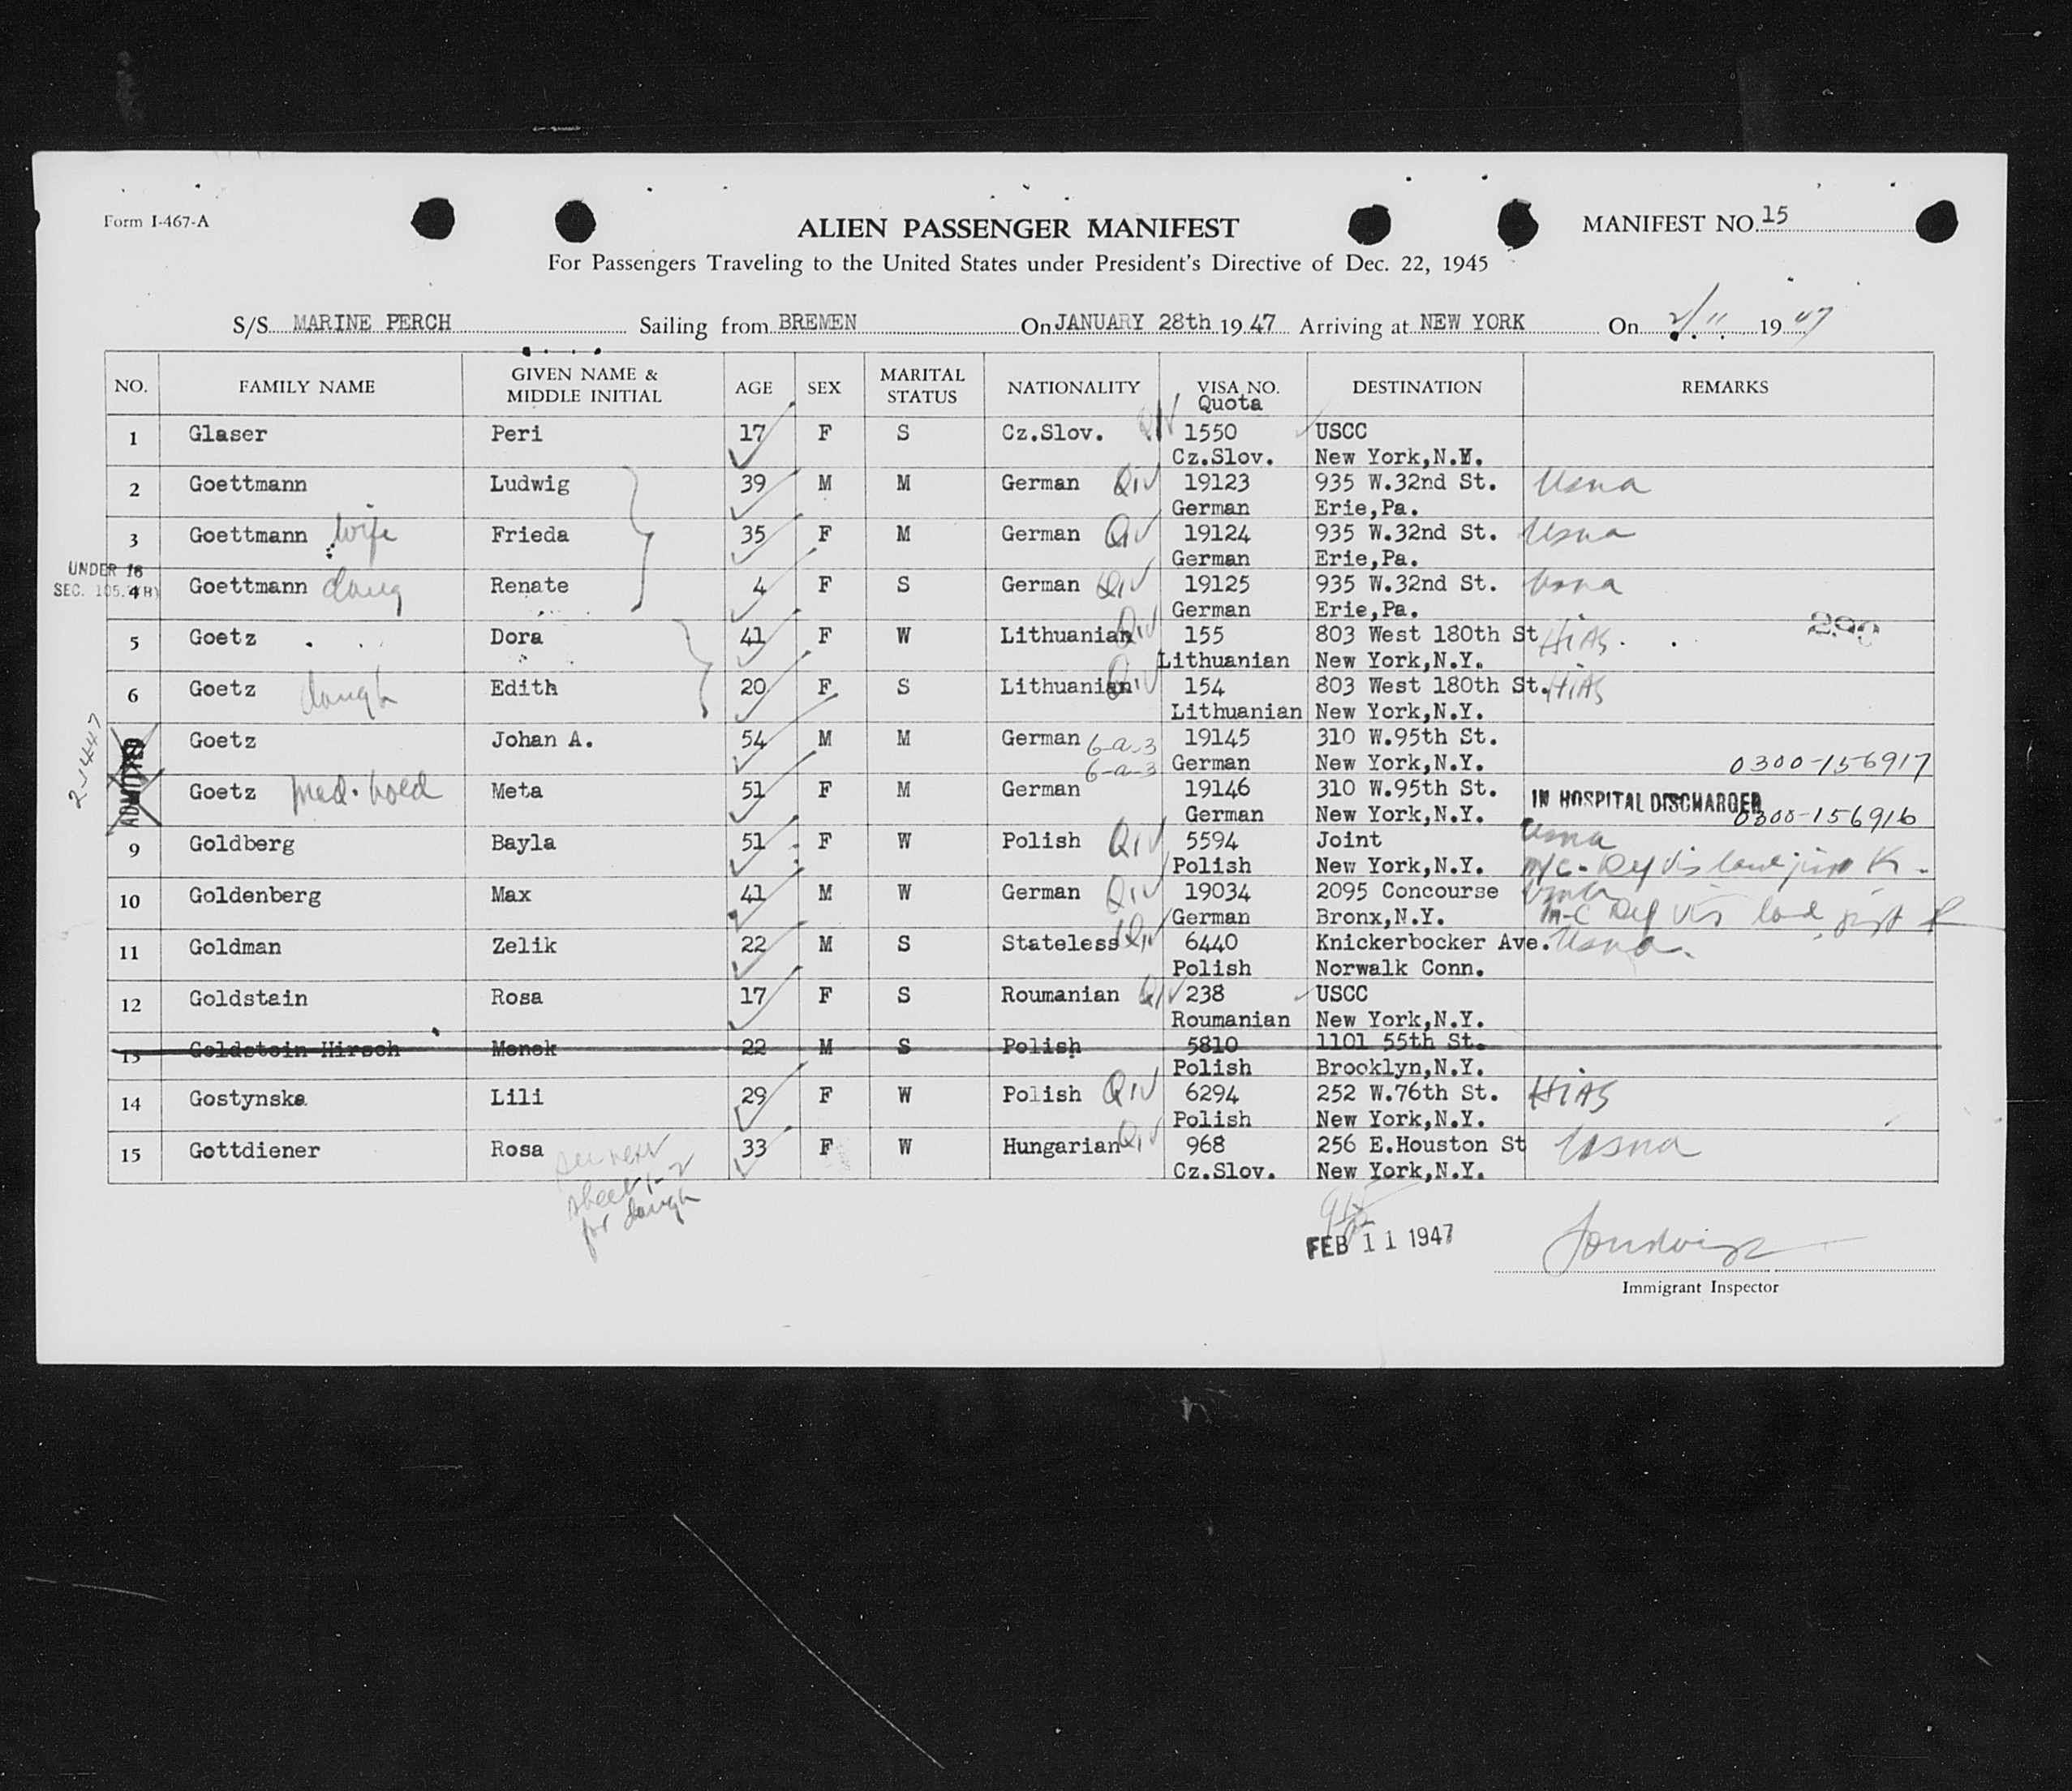 Form I-467-A
ALIEN PASSENGER MANIFEST
MANIFEST NO. 15
For Passengers Traveling to the United States under President's Directive of Dec. 22, 1945
S/S MARINE PERCH Sailing from BREMEN On JANUARY 28th 19 47 Arriving at NEW YORK On 2/11 19 47
NO. FAMILY NAME GIVEN NAME & MIDDLE INITIAL AGE SEX MARITAL STATUS NATIONALITY VISA NO. Quota DESTINATION REMARKS
1 Glaser Peri 17 F S Cz.Slov. QIV 1550 USCC
Cz.Slov. New York,N.Y.
2 Goettmann Ludwig 39 M M German QIV 19123 935 W.32nd St. Usna
German Erie,Pa.
3 Goettmann wife Frieda 35 F M German QIV 19124 935 W.32nd St. Usna
German Erie,Pa.
UNDER 16
SEC. 105.
4 Goettmann daug Renate 4 F S German QIV 19125 935 W.32nd St. Usna
German Erie,Pa.
290
5 Goetz Dora 41 F W Lithuanian QIV 155 803 West 180th St HIAS
Lithuanian New York,N.Y.
6 Goetz daugh Edith 20 F S Lithuanian QIV 154 803 West 180th St. HIAS
Lithuanian New York,N.Y.
ADMITTED
Goetz Johan A. 54 M M German 6-a-3 19145 310 W.95th St.
German New York,N.Y. 0300-156917
Goetz med. hold Meta 51 F M German 6-a-3 19146 310 W.95th St. IN HOSPITAL DISCHARGED
German New York,N.Y. 0300-156916
9 Goldberg Bayla 51 F W Polish QIV 5594 Joint Usna
Polish New York,N.Y.
10 Goldenberg Max 41 M W German QIV 19034 2095 Concourse Usna
German Bronx,N.Y.
11 Goldman Zelik 22 M S Stateless QIV 6440 Knickerbocker Ave. Usna
Polish Norwalk Conn.
12 Goldstain Rosa 17 F S Roumanian QIV 238 USCC
Roumanian New York,N.Y.
13 Goldstein Hirsch Monek 22 M S Polish 5810 1101 55th St.
Polish Brooklyn,N.Y.
14 Gostynska Lili 29 F W Polish QIV 6294 252 W.76th St. HIAS
Polish New York,N.Y.
15 Gottdiener Rosa 33 F W Hungarian QIV 968 256 E.Houston St Usna
Cz.Slov. New York,N.Y.
see next
sheet 1-2
for daugh
FEB 11 1947
Immigrant Inspector